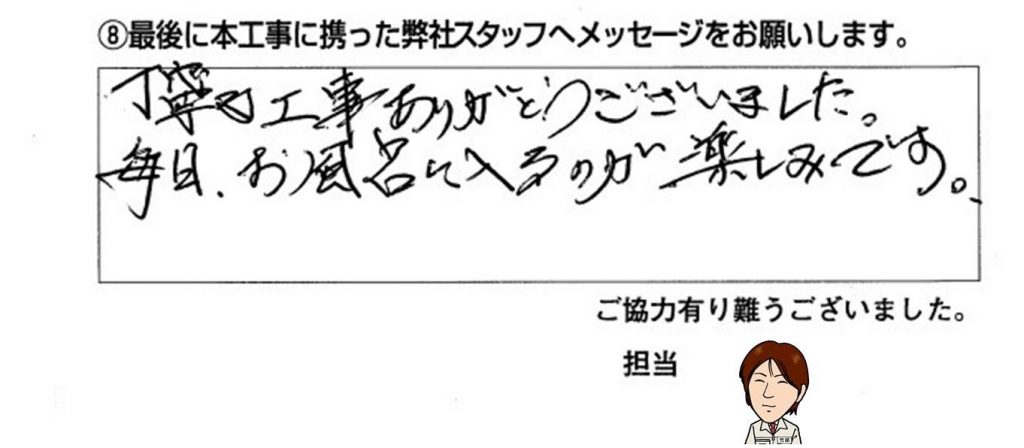 ⑧最後に本工事に携った弊社スタッフへメッセージをお願いします。
丁寧な工事ありがとうございました。
毎日、お風呂に入るのが楽しみです。
ご協力有り難うございました。
担当